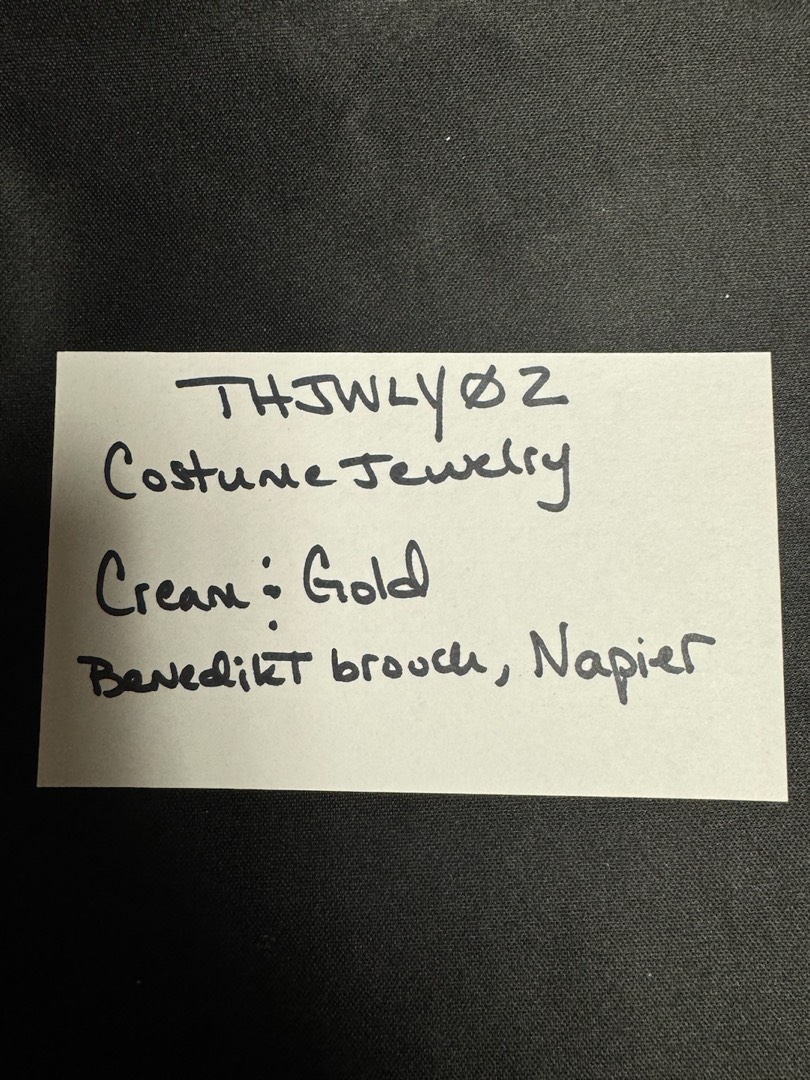 THJWLY02
Costume Jewelry
Cream : Gold
Benedikt brouch, Napier